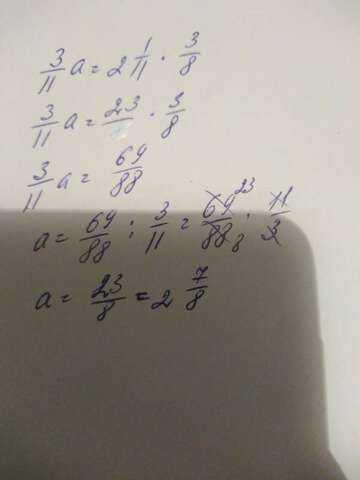 3/11 a = 2 1/11 · 3/8
3/11 a = 23/ · 3/8
3/11 a = 69/88
a = 69/88 : 3/11 = 69 23/88 8 · 11/3
a = 23/8 = 2 7/8